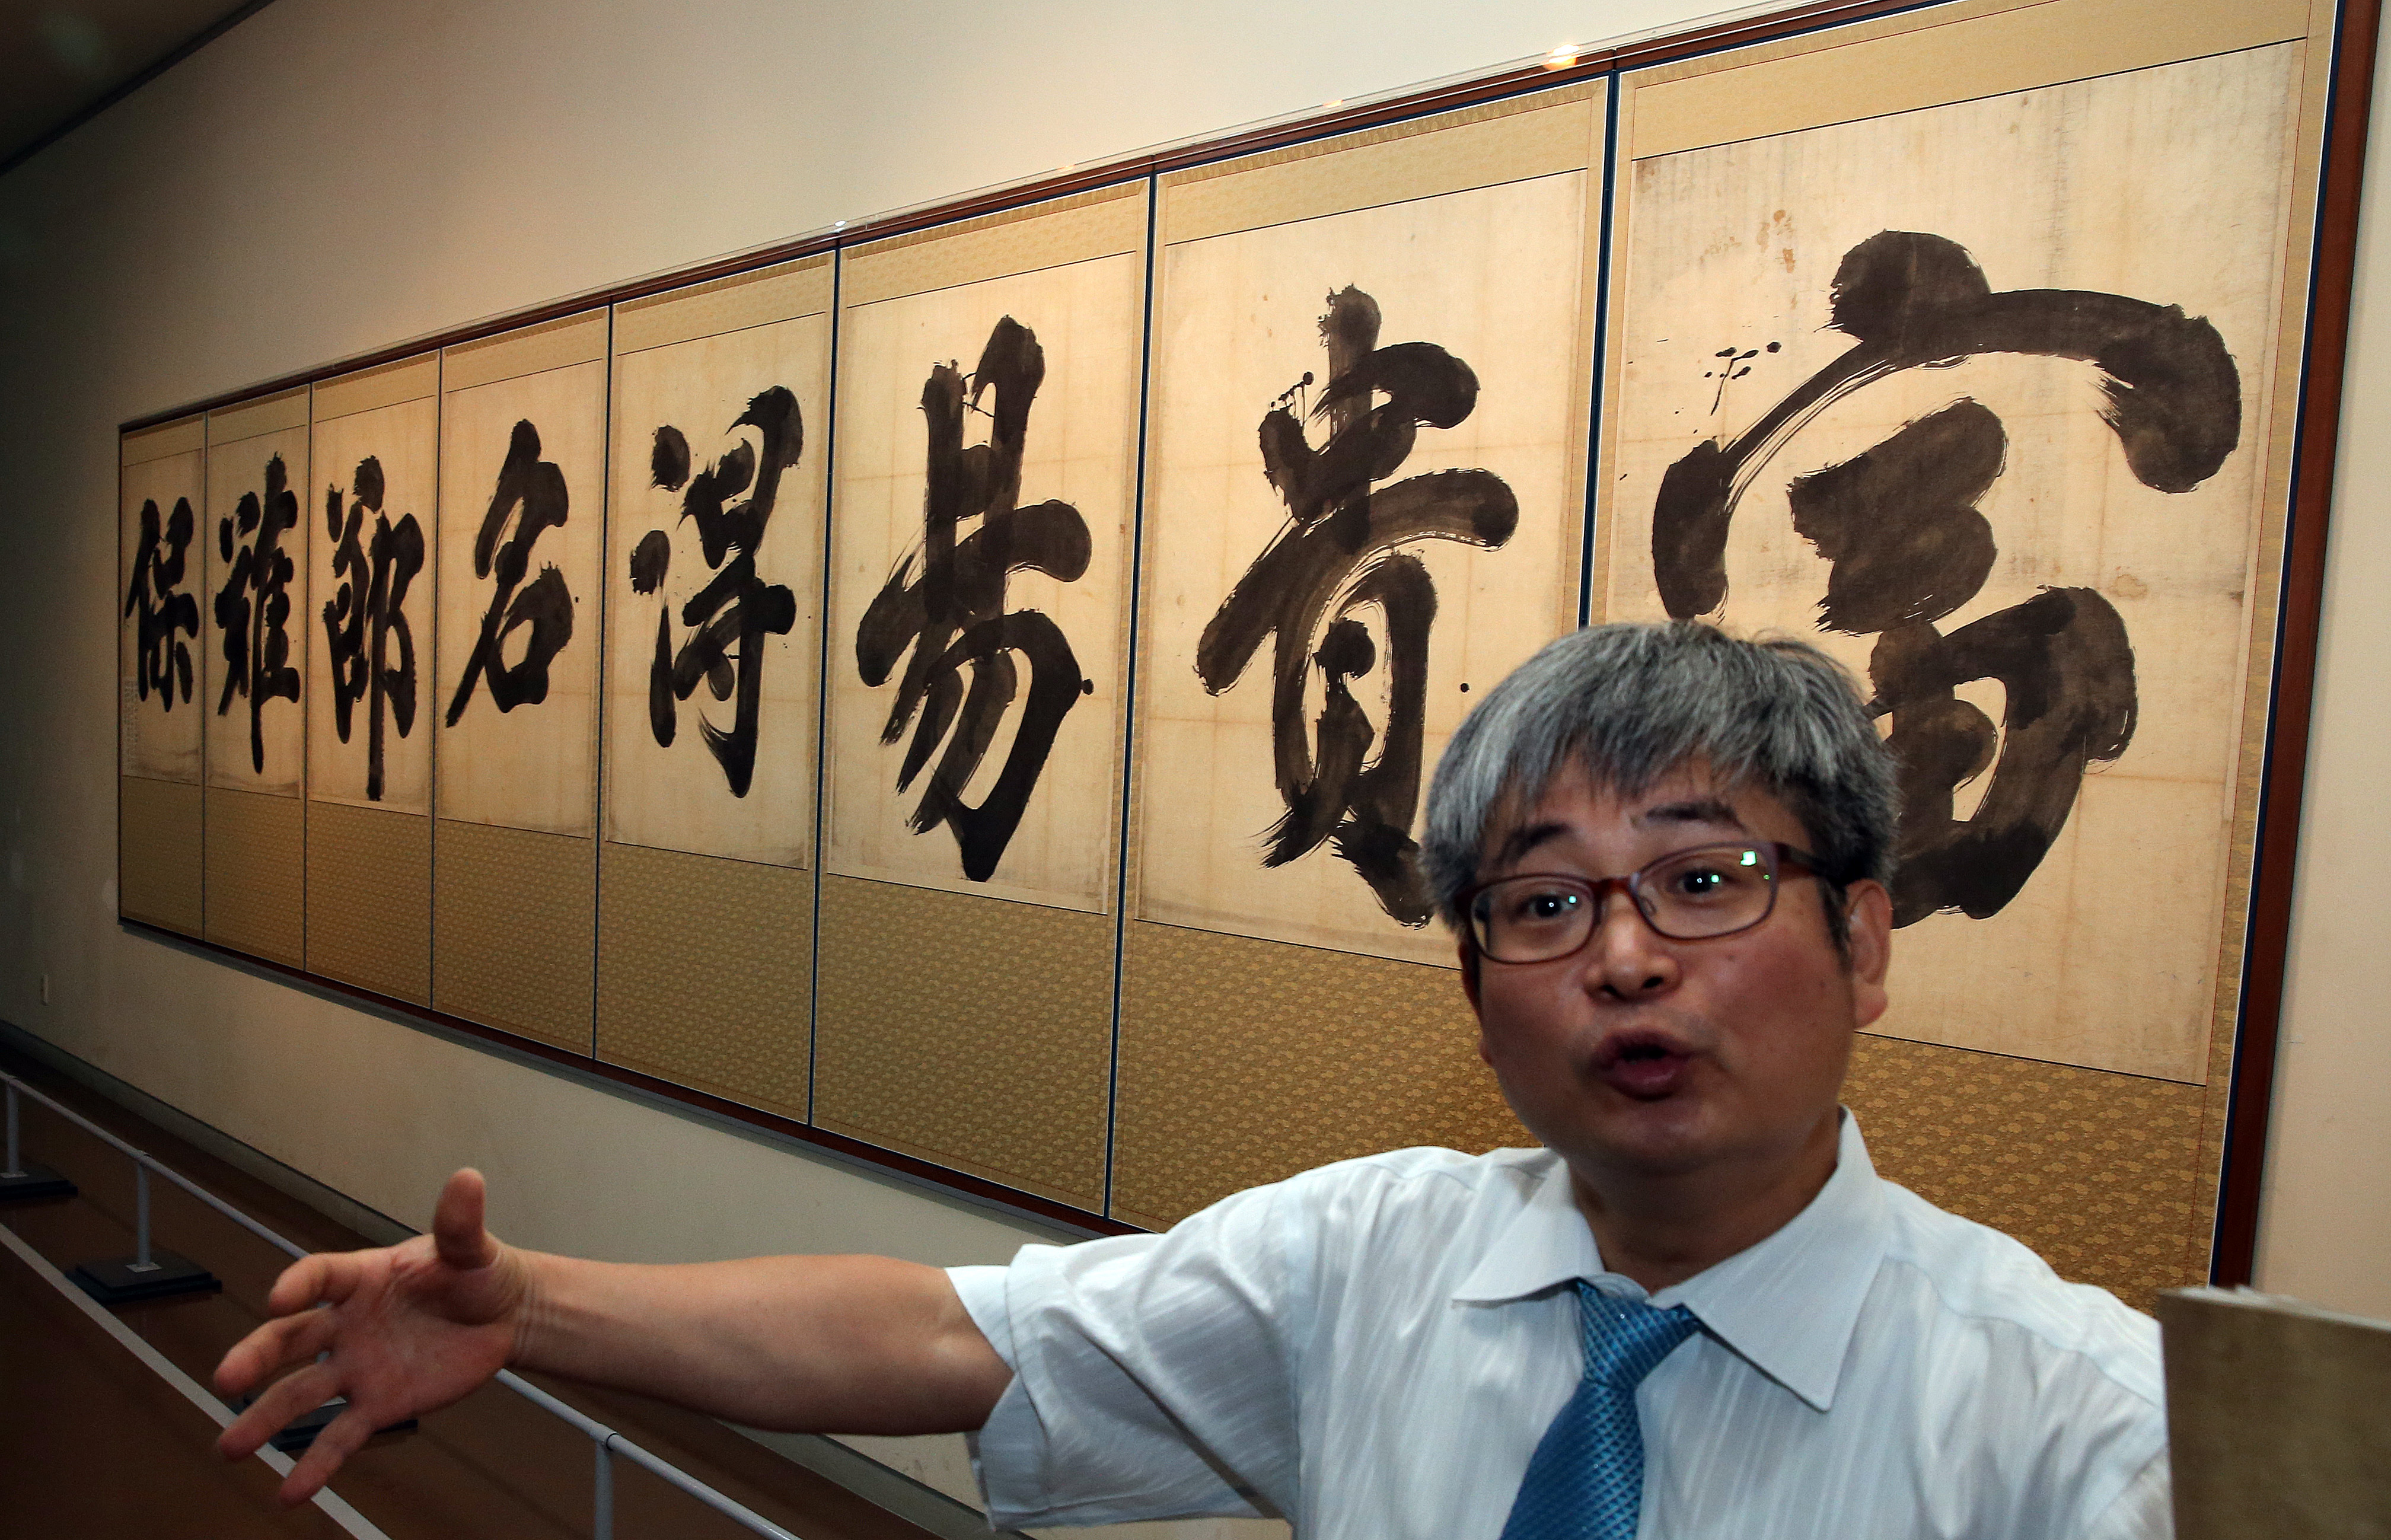 富貴易得名節難保